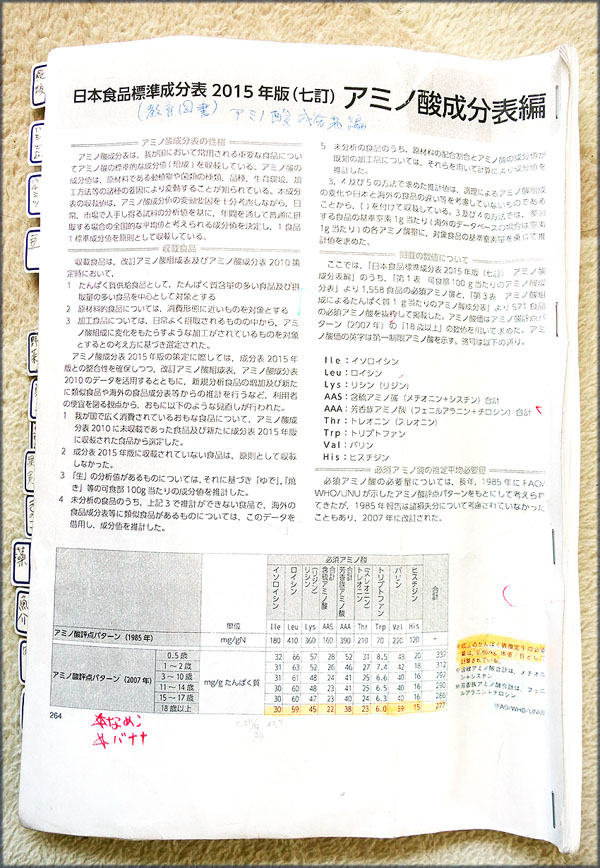 日本食品標準成分表 2015 年版(七訂) アミノ酸成分表編
(教育図書) アミノ酸成分表編
アミノ酸成分表の性格
アミノ酸成分表は、我が国において常用される重要な食品につい
てアミノ酸の標準的な成分値(組成)を収載している。アミノ酸の
成分値は、原材料である動植物や菌類の種類、品種、生育環境、加
工方法等の諸種の要因により変動することが知られている。本成分
表の収載値は、アミノ酸成分値の変動要因を十分考慮しながら、日
常、市場で入手し得る試料の分析値を基に、年間を通して普通に摂
取する場合の全国的な平均値と考えられる成分値を決定し、1 食品
1 標準成分値を原則として収載している。
収載食品
収載食品は、改訂アミノ酸組成表及びアミノ酸成分表 2010 策
定時において、
1 たんぱく質供給食品として、たんぱく質含量の多い食品及び摂
取量の多い食品を中心として対象とする
2 原材料的食品については、消費形態に近いものを対象とする
3 加工食品については、日常よく摂取されるものの中から、アミ
ノ酸組成に変化をもたらすような加工がされているものを対象
とするとの考え方に基づき選定された。
アミノ酸成分表 2015 年版の策定に際しては、成分表 2015 年
版との整合性を確保しつつ、改訂アミノ酸組成表、アミノ酸成分表
2010 のデータを活用するとともに、新規分析食品の増加及び新た
に類似食品や海外の食品成分表等からの推計を行うなど、利用者
の便宜を図る観点から、おもに以下のような見直しが行われた。
1 我が国で広く消費されているおもな食品について、アミノ酸成
分表 2010 に未収載であった食品及び新たに成分表 2015 年版
に収載された食品から選定した。
2 成分表 2015 年版に収載されていない食品は、原則として収載
しなかった。
3 「生」の分析値があるものについては、それに基づき「ゆで」、「焼
き」等の可食部 100g 当たりの成分値を推計した。
4 未分析の食品のうち、上記 3 で推計ができない食品で、海外の
食品成分表等に類似食品があるものについては、このデータを
借用し、成分値を推計した。
5 未分析の食品のうち、原材料の配合割合とアミノ酸の成分値が
既知の加工品については、それらを用いて計算により成分値を
推計した。
3、4 及び 5 の方法で求めた推計値は、調理によるアミノ酸組成
の変化や日本と海外の食品の違い等を考慮していないものである
ことから、( )を付けて収載している。3 及び 4 の方法では、
する食品の基準窒素 1g 当たり(海外のデータベースの場合は窒素
1g 当たり)の各アミノ酸量に、対象食品の基準窒素量を乗じて推
計値を求めた。
掲載の数値について
ここでは、「日本食品標準成分表 2015 年版(七訂) アミノ酸
成分表編」のうち、「第 1 表 可食部 100g 当たりのアミノ酸成分
表」より 1,558 食品の必須アミノ酸と、「第 3 表 アミノ酸組
成によるたんぱく質 1g 当たりのアミノ酸成分表」より 571 食品
の必須アミノ酸を抜粋して掲載した。アミノ酸価はアミノ酸評点パ
ターン(2007 年)の「18 歳以上」の数値を用いて求めた。アミ
ノ酸価の英字は第一制限アミノ酸を示す。略号は以下の通り。
Ile：イソロイシン
Leu：ロイシン
Lys：リシン(リジン)
AAS：含硫アミノ酸(メチオニン+シスチン)合計
AAA：芳香族アミノ酸(フェニルアラニン+チロシン)合計
Thr：トレオニン(スレオニン)
Trp：トリプトファン
Val：バリン
His：ヒスチジン
必須アミノ酸の推定平均必要量
必須アミノ酸の必要量については、長年、1985 年に FAO/
WHO/UNU が示したアミノ酸評点パターンをもとにして考えられ
てきたが、1985 年報告は諸損失分について考慮されていなかった
こともあり、2007 年に改訂された。
必須アミノ酸
単位 イソロイシン ロイシン リシン(リジン) 含硫アミノ酸合計 芳香族アミノ酸合計 トレオニン(スレオニン) トリプトファン バリン ヒスチジン 合計
Ile Leu Lys AAS AAA Thr Trp Val His
アミノ酸評点パターン(1985 年) mg/gN 180 410 360 160 390 210 70 220 120 -
アミノ酸評点パターン(2007 年) mg/g たんぱく質
0.5 歳 32 66 57 28 52 31 8.5 43 20 337
1 ～ 2 歳 31 63 52 26 46 27 7.4 42 18 312
3 ～ 10 歳 31 61 48 24 41 25 6.6 40 16 292
11 ～ 14 歳 30 60 48 23 41 25 6.5 40 16 290
15 ～ 17 歳 30 60 47 23 40 24 6.3 40 16 286
18 歳以上 30 59 45 22 38 23 6.0 39 15 277
計算されている。
※含硫アミノ酸合計は、メチオニ
ン+シスチン
※芳香族アミノ酸合計は、フェニ
ルアラニン+チロシン
(FAO/WHO/UNU)
264
☆なめこ
☆バナナ
豆
野菜
菓
魚介